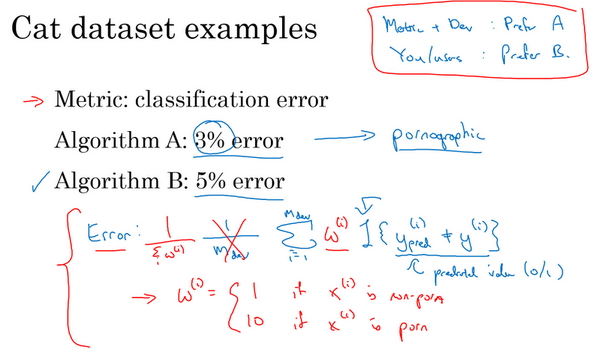 Cat dataset examples
Metric + Dev : Prefer A
You/users : Prefer B.
→ Metric: classification error
Algorithm A: 3% error → pornographic
✓ Algorithm B: 5% error
Error: 1/Σw⁽ⁱ⁾ 1/m_dev Σ_{i=1}^{m_dev} w⁽ⁱ⁾ 1{y_pred⁽ⁱ⁾ ≠ y⁽ⁱ⁾}
predicted value (0/1)
→ w⁽ⁱ⁾ = { 1 if x⁽ⁱ⁾ is non-porn
10 if x⁽ⁱ⁾ is porn